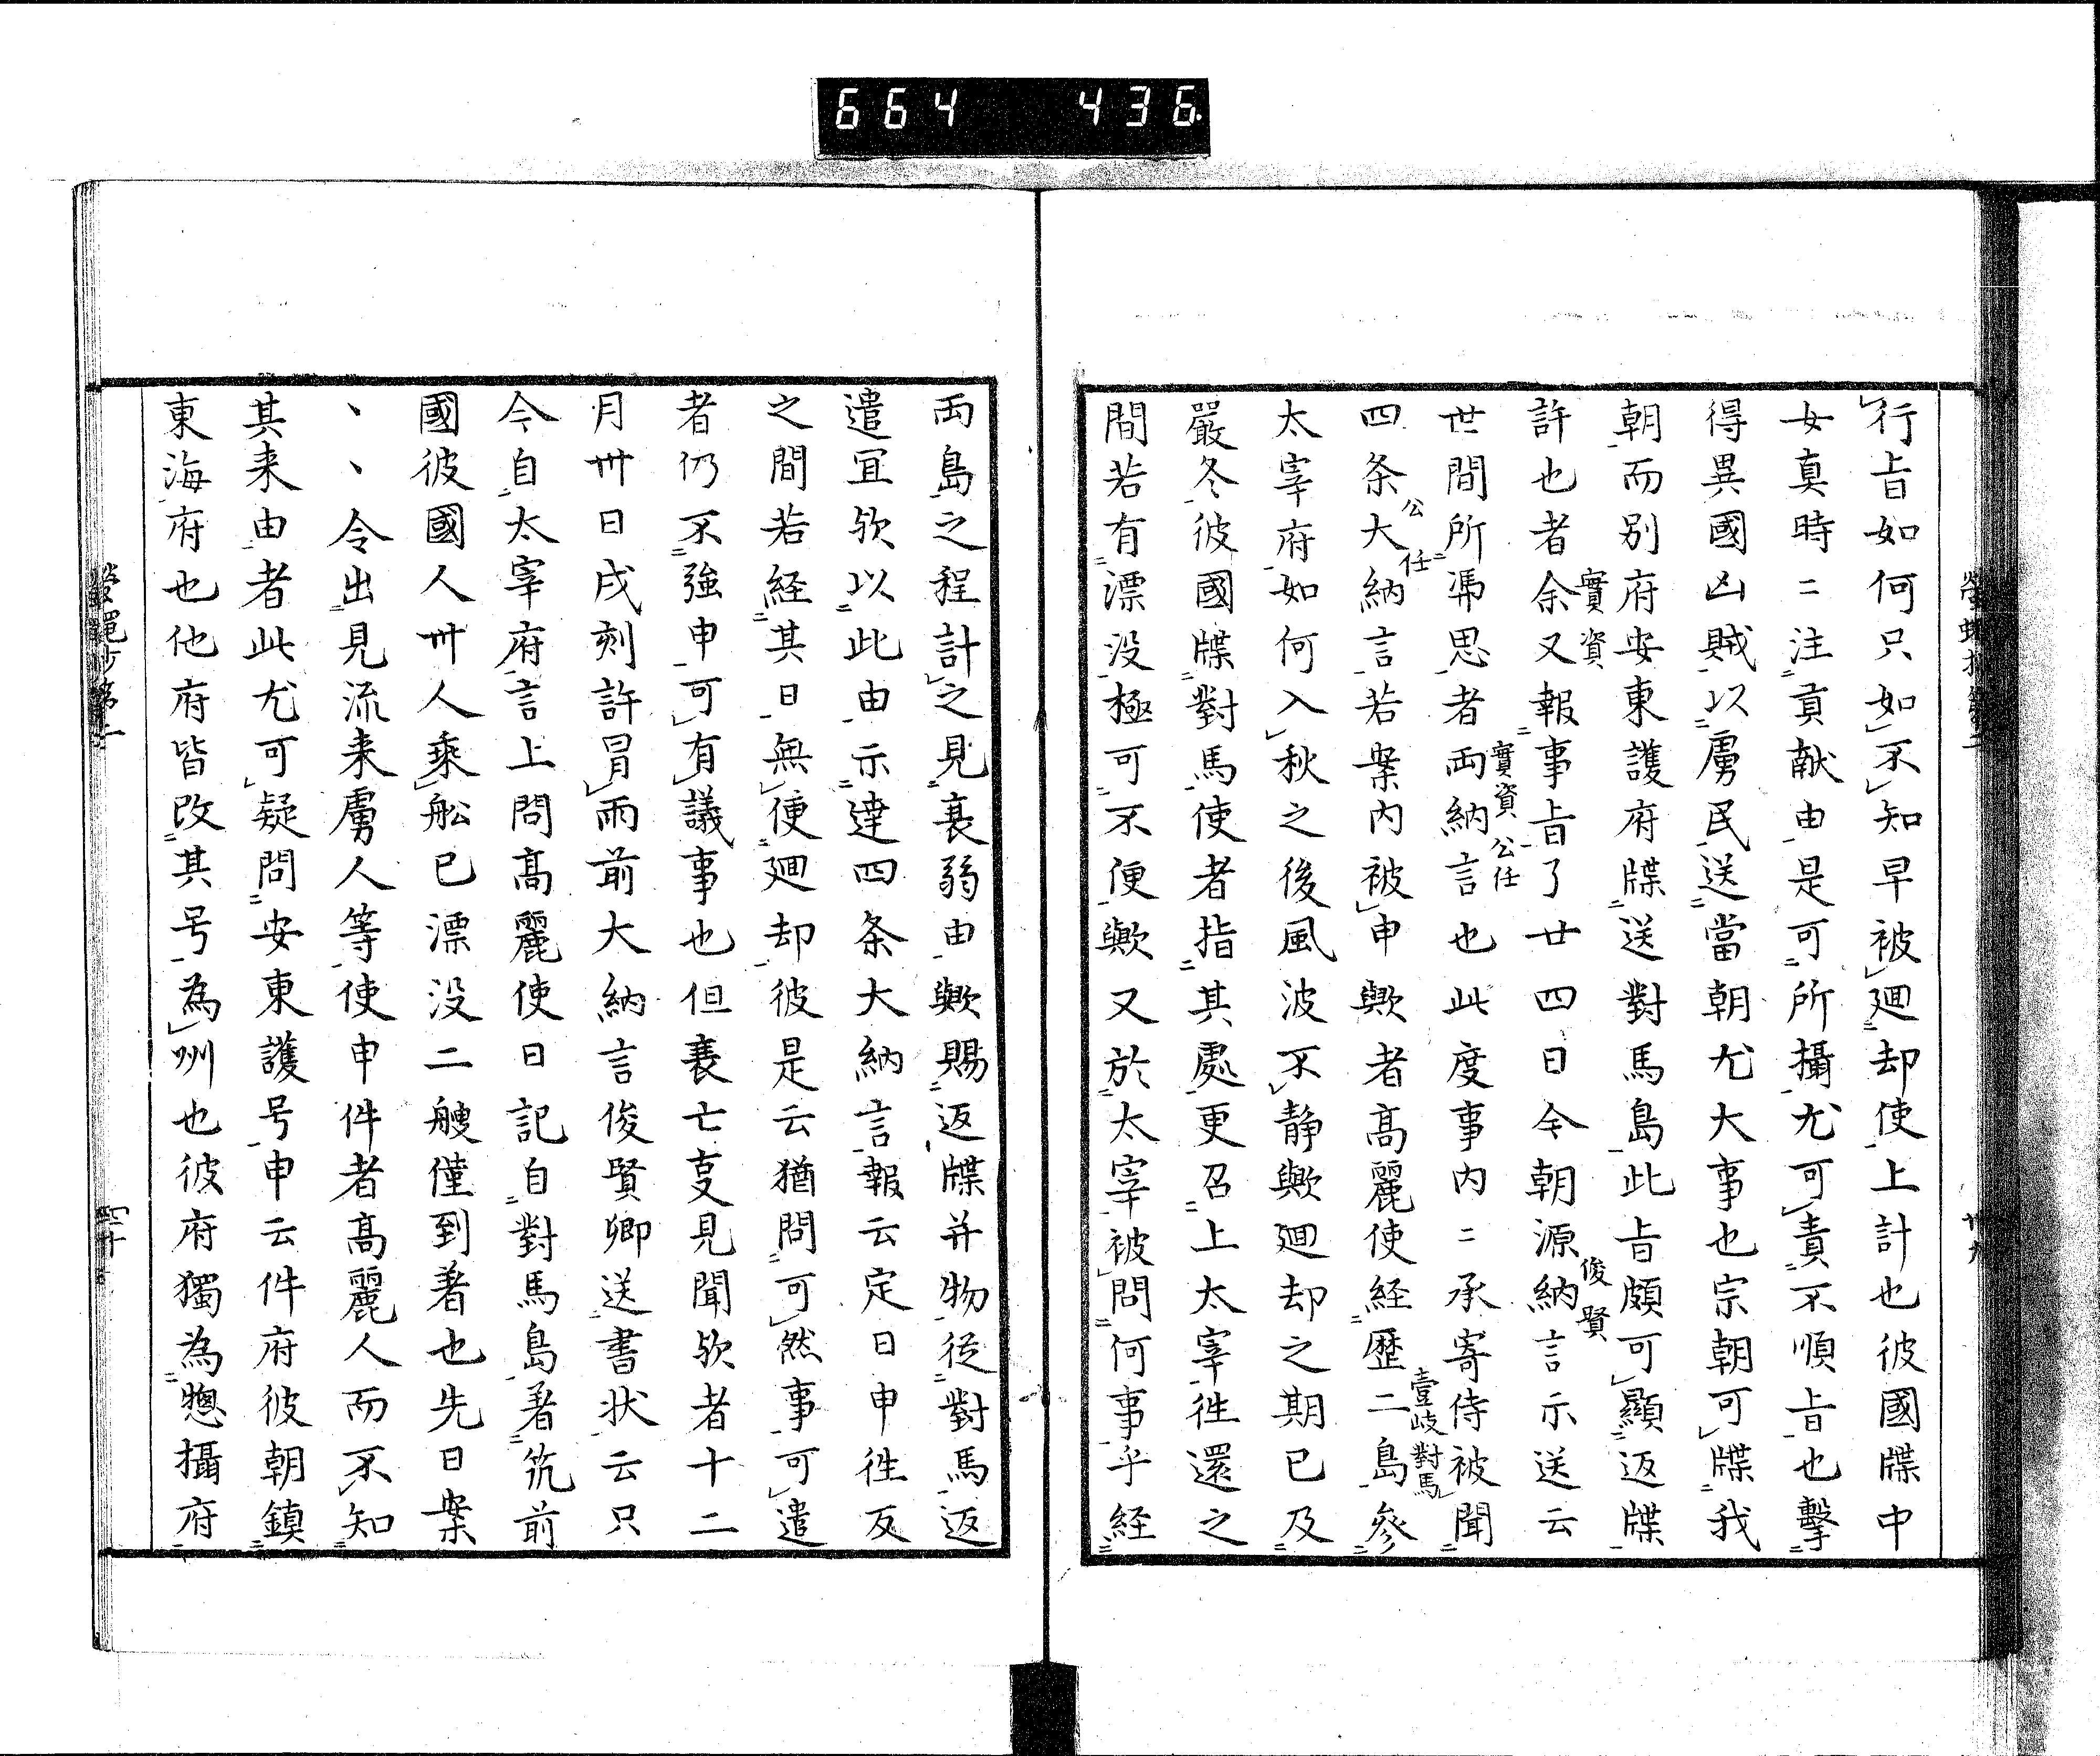 664 436
行旨如何只如不知早被廻却使上計也彼國牒中
女真時〻注貢献由是可所攝尤可責不順旨也擊
得異國凶賊以虜民送當朝尤大事也宗朝可牒我
朝而別府安東護府牒送對馬島此旨頗可顯返牒
許也者余又報事旨了廿四日今朝源納言示送云
實資
俊賢
世間所馮思者両納言也此度事内〻承寄侍被聞
實資 公任
四条大納言若案内被申歟者高麗使経歴二島參
公任
壹岐對馬
太宰府如何入秋之後風波不静歟廻却之期已及
嚴冬彼國牒對馬使者指其處更召上太宰徃還之
間若有漂没極可不便歟又於太宰被問何事乎経
両島之程計之見衰弱由歟賜返牒并物従對馬返
遣冝欤以此由示達四条大納言報云定日申徃反
之間若経其日無便廻却彼是云猶問可然事可遣
者仍不強申可有議事也但衰亡叓見聞欤者十二
月卅日戌刻許冒雨前大納言俊賢卿送書状云只
今自太宰府言上問高麗使日記自對馬島著筑前
國彼國人卅人乘舩已漂没二艘僅到着也先日案
、、令出見流来虜人等使申件者高麗人而不知
其来由者此尤可疑問安東護号申云件府彼朝鎮
東海府也他府皆改其号為州也彼府獨為惣攝府